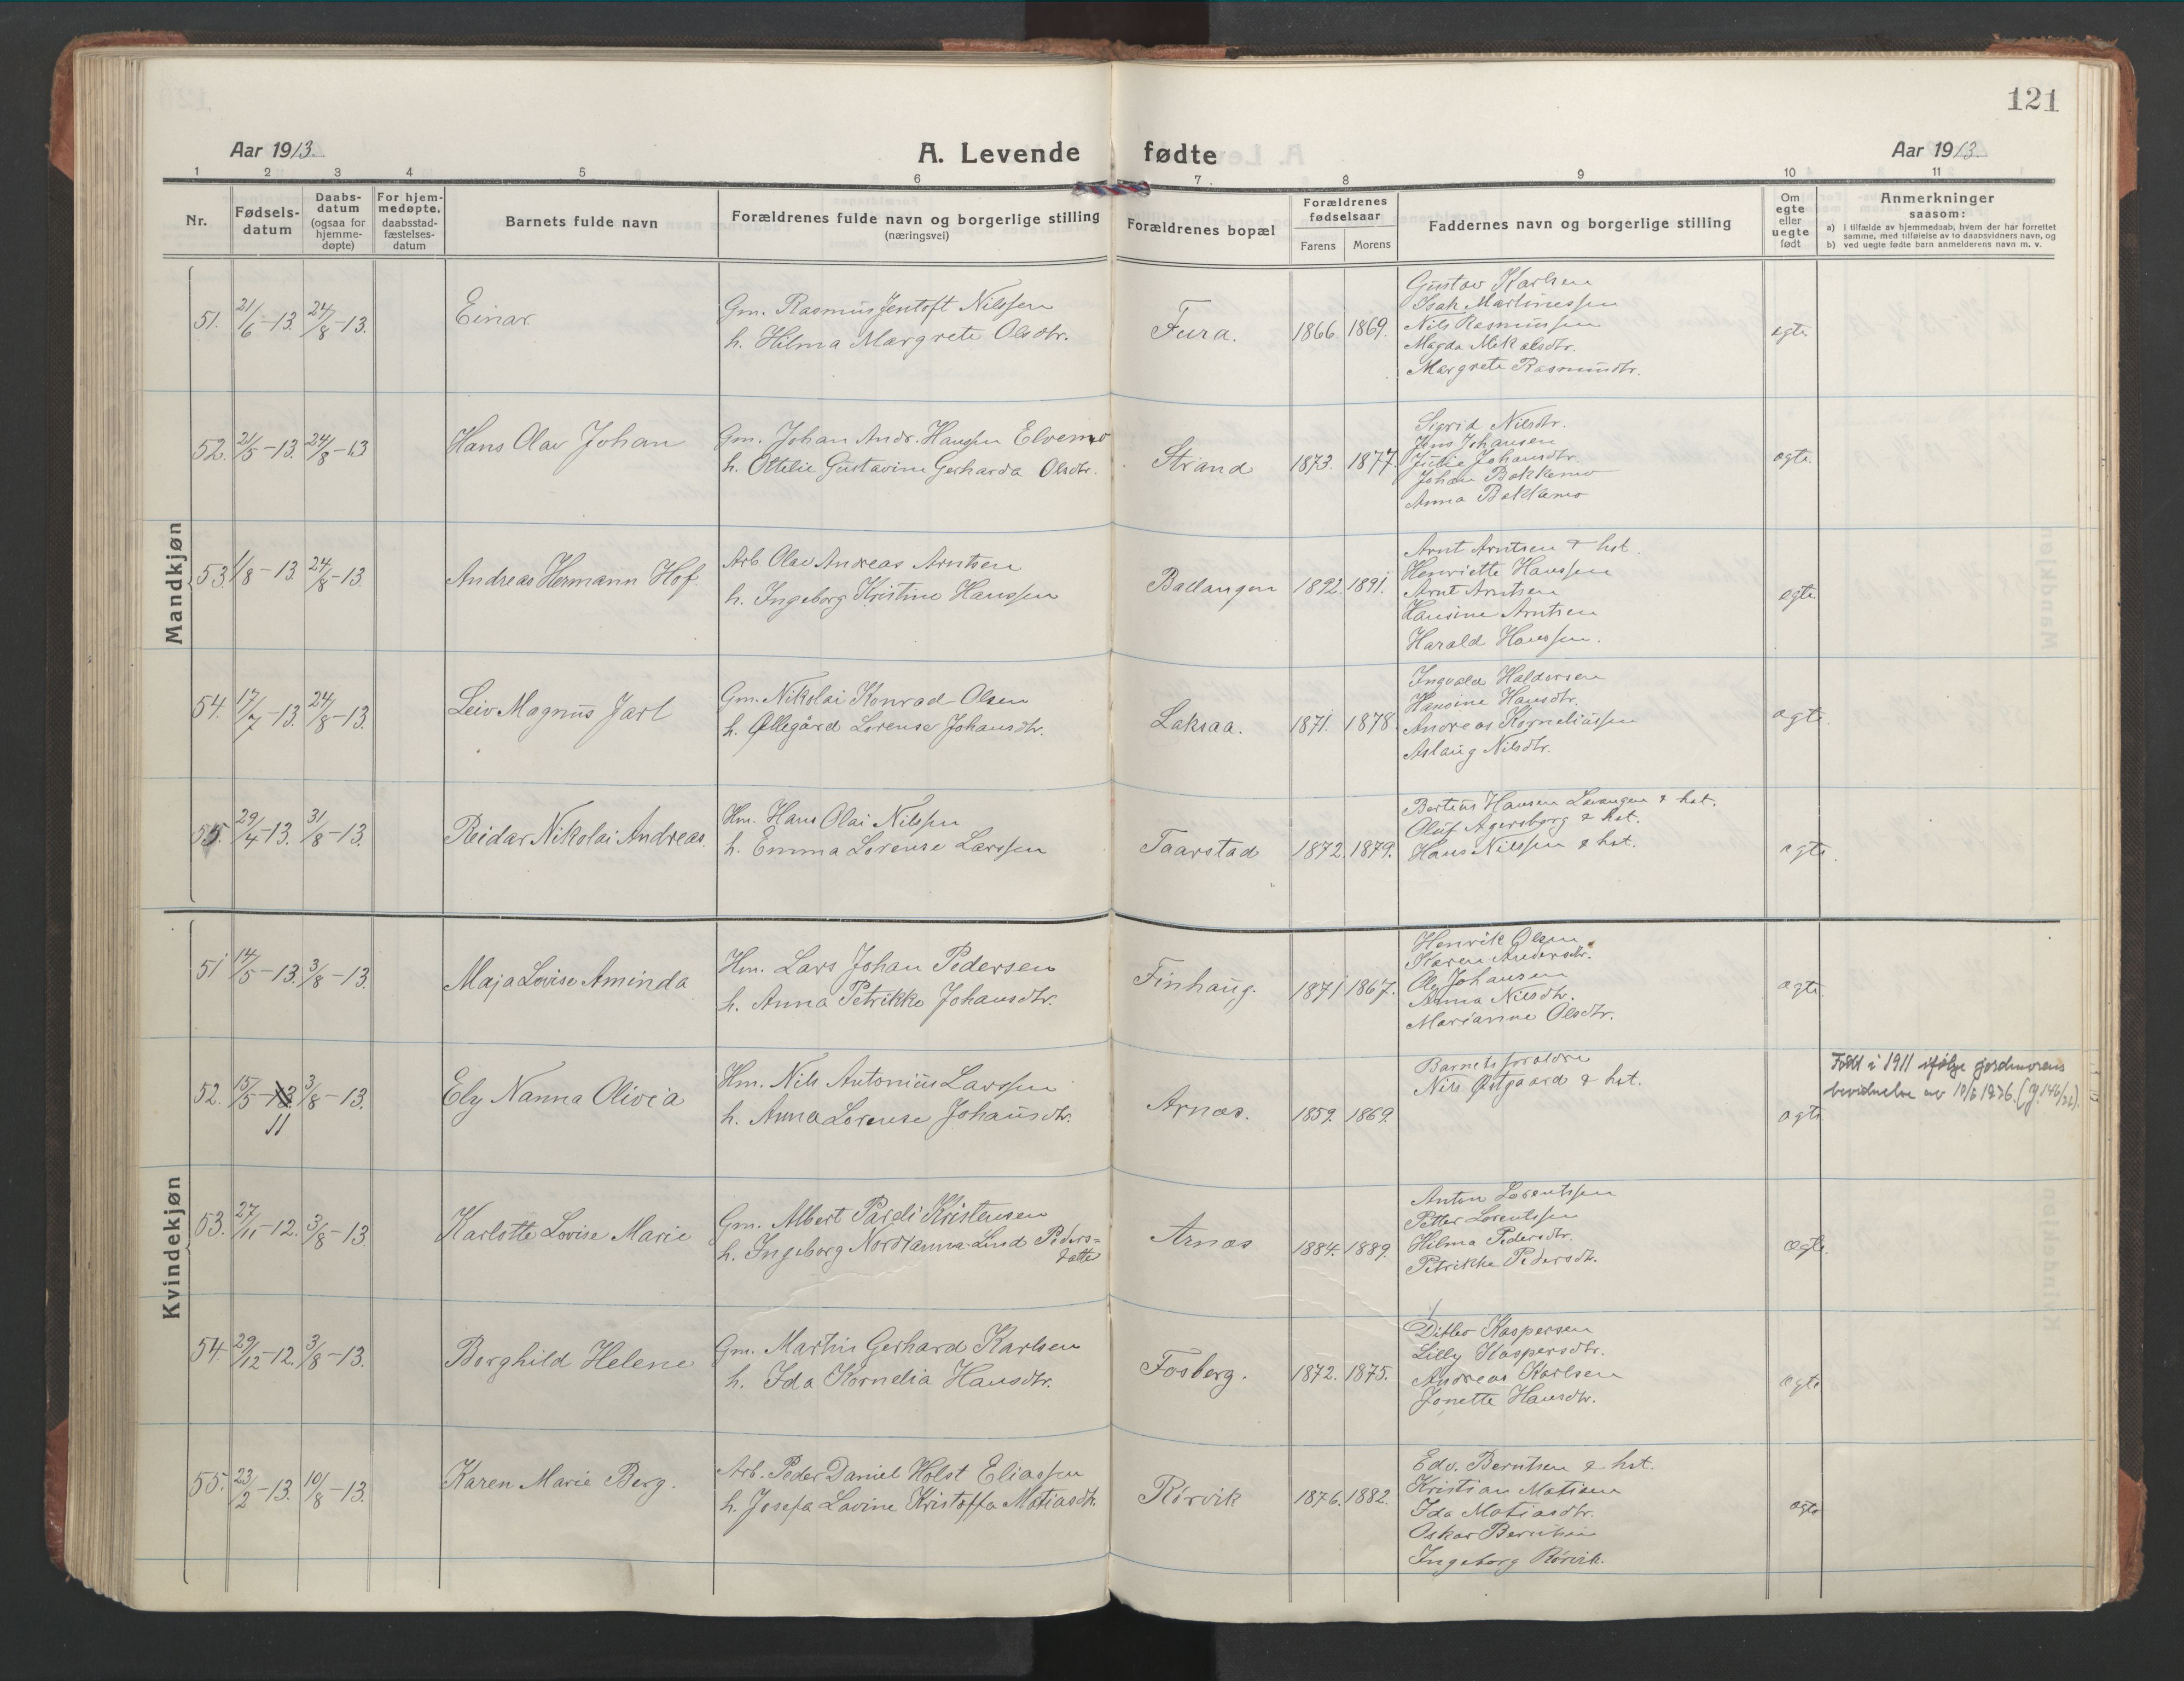 121
Aar 1913.
A. Levende fødte
Aar 1913.
1 2 3 4 5 6 7 8 9 10 11
Nr.
Fødsels-
datum
Daabs-
datum
(ogsaa for
hjemme-
døpte)
For hjem-
medøpte,
daabsstad-
fæstelses-
datum
Barnets fulde navn
Forældrenes fulde navn og borgerlige stilling
(næringsvei)
Forældrenes bopæl
Forældrenes
fødselsaar
Farens Morens
Faddernes navn og borgerlige stilling
Om
egte
eller
uegte
født
Anmerkninger
saasom:
a) i tilfælde av hjemmedaab, hvem der har forrettet
samme, med tilføielse av to daabsvidners navn, og
b) ved uegte fødte barn anmelderens navn m. v.
Mandkjøn
51. 21/6-13. 24/8-13.
Einar
Gm. Rasmus Jentoft Nilssen
h. Hilma Margrete Olsdtr.
Fura. 1866. 1869.
Gustav Karlsen
Isak Martinessen
Nils Rasmussen
Magda Mikalsdtr.
Margrete Rasmusdtr.
egte.
52. 21/5-13. 24/8-13
Hans Olav Johan
Gm. Johan Andr. Haugen Elvemo
h. Ottelie Gustavine Gerharda Olsdtr.
Strand 1873. 1877.
Sigrid Nilsdtr.
Jens Johansen
Julie Johansdtr.
Johan Bakkemo
Anna Bakkemo
egte.
53. 1/8-13. 24/8-13.
Andreas Hermann Hof.
Arb. Olav Andreas Arntsen
h. Ingeborg Kristine Hanssen
Ballangen 1892. 1891.
Arnt Arntsen & hst.
Henriette Hanssen
Arnt Arntsen
Hansine Arntsen
Harald Hanssen.
egte.
54. 17/7-13. 24/8-13
Leiv Magnus Jarl
Gm. Nikolai Konrad Olsen
h. Ollegård Lorense Johansdtr.
Laksaa. 1871. 1878.
Ingvald Haldorsen
Hansine Hansdtr.
Andreas Korneliussen
Aslaug Nilsdtr.
egte.
55. 29/4-13. 31/8-13.
Reidar Nikolai Andreas.
Hm. Hans Olai Nilssen
h. Emma Lorense Larssen
Taarstad 1872. 1879.
Bertius Hansen Lavangen & hst.
Oluf Agersborg & hst.
Hans Nilssen & hst.
egte.
Kvindekjøn
51 14/5-13. 3/8-13.
Maja Lovise Aminda
Hm. Lars Johan Pedersen
h. Anna Petrikke Johansdtr.
Finhaug. 1871 1867.
Henrik Olsen
Karen Andersdtr.
Ole Johansen
Anna Nilsdtr.
Marianne Olsdtr.
egte.
52. 15/5-13. 3/8-13.
11
Ely Nanna Olivia
Hm. Nils Antonius Larssen
h. Anna Lorense Johansdtr.
Arnes. 1859. 1869.
Barnets foreldre
Nils Østgaard & hst.
egte.
Født i 1911 ifølge jordmorens
bevidnelse av 18/6 1926. (J. 146/26).
53. 27/11-12. 3/8-13
Karlotte Lovise Marie
Gm. Albert Pareli Kristensen
h. Ingeborg Nordianna Lind Peders=
datter
Arnes 1884. 1889.
Anton Lorentssen
Petter Lorentssen
Hilma Pedersdtr.
Petrikke Pedersdtr.
egte.
54. 29/12-12. 3/8-13.
Borghild Helene
Gm. Martin Gerhard Karlsen
h. Ida Kornelia Hansdtr.
Fosberg. 1872. 1875.
Ditlev Kaspersen
Lilly Kaspersdtr.
Andreas Karlsen
Jonette Hansdtr.
egte
55. 23/2-13. 10/8-13.
Karen Marie Berg.
Arb. Peder Daniel Holst Eliassen
h. Josefa Lavine Kristoffa Matiasdtr.
Rørvik 1876. 1882.
Edv. Berntsen & hst.
Kristian Matisen
Ida Matiasdtr.
Oskar Berntsen
Ingeborg Rørvik.
egte